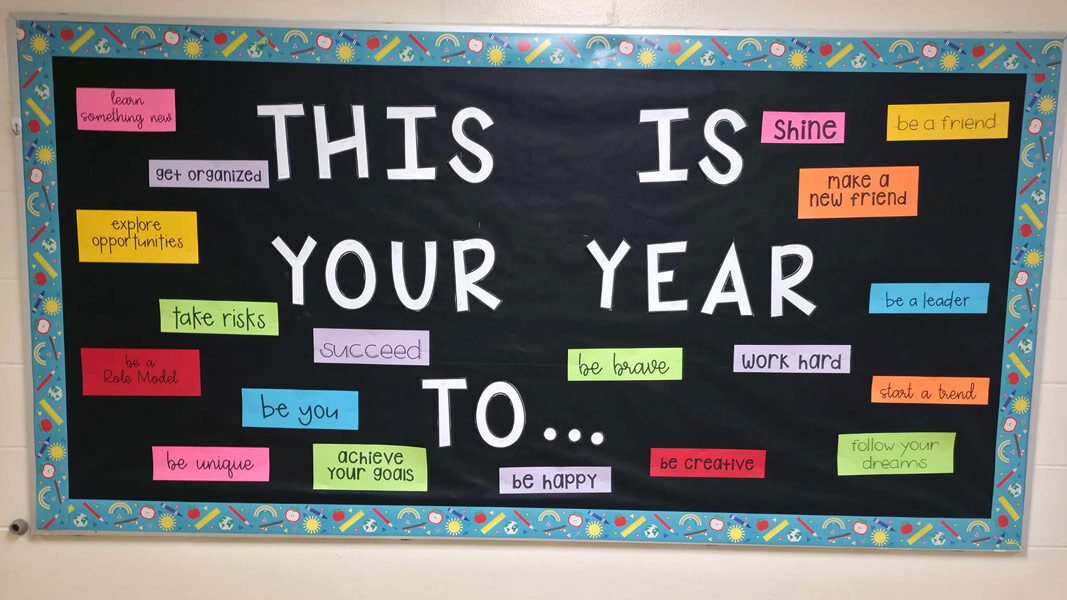 THIS IS
YOUR YEAR
TO...
learn
something new
get organized
explore
opportunities
take risks
be a
Role Model
succeed
be you
be unique
achieve
your goals
be happy
be brave
be creative
work hard
shine
be a friend
make a
new friend
be a leader
start a trend
follow your
dreams